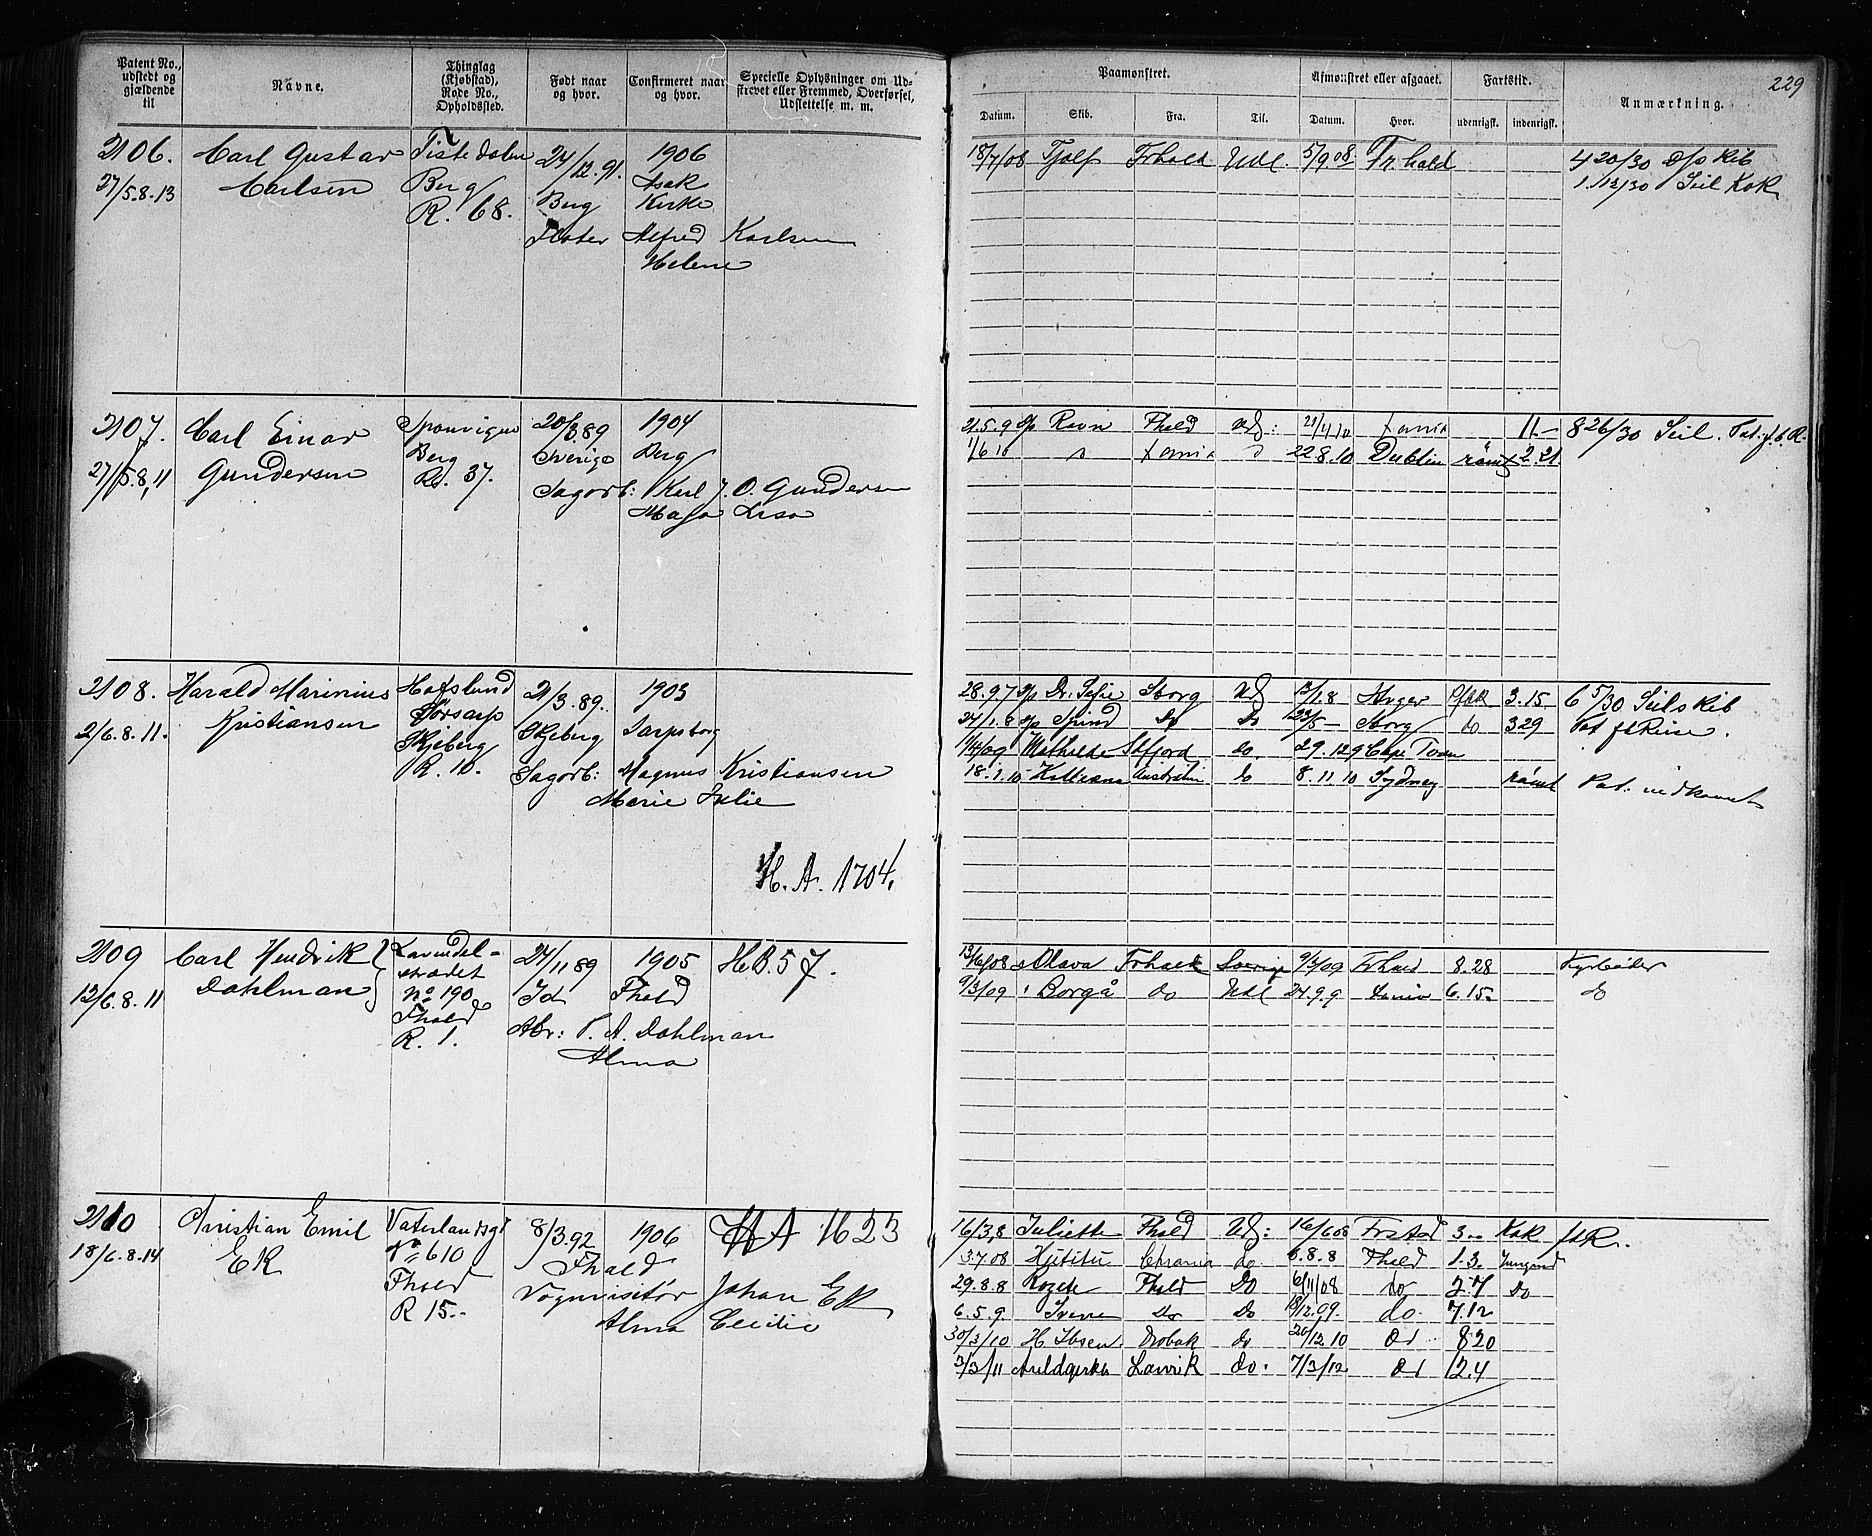 229
Patent No., udstedt og gjældende til
Navne.
Thinglag (Kjøbstad), Rode No., Opholdssted.
Født naar og hvor.
Confirmeret naar og hvor.
Specielle Oplysninger om Udskrevet eller Fremmed, Overførsel, Udslettelse m. m.
Paamønstret.
Afmønstret eller afgaaet.
Fartstid.
Anmærkning.
Datum. Skib. Fra. Til. Datum. Hvor. udenrigsk. indenrigsk.
2106. Carl Gustav Tistedalen 24/12.91. 1906
27/5.8.13 Carlsen Berg Berg Asak Kirke
R. 68.
Alfred Karlsen
Helene
18/7/08 Tjalf Frhald Udl. 5/9 08 Fr.hald 4 20/30 d/p Kib
1.12/30 Seil Kok
2107. Carl Einar Sponvigen 20/3 89 1904
27/5.8,11 Gundersen Berg Sverige Berg
R. 37. Sagarb: Karl J. O. Gundersen
Maja Lisa
21.5.9 d/p Ravn Fhald Udl: 21/4 10 Xania 11- 8 26/30 Seil. Pat. f. t. R.
1/6 10 Xania 22.8.10 Dublin rømt 2.21.
2108. Harald Marinius Hafslund 21/3.89. 1903
2/6.8.11. Kristiansen Borgarsp Skjeberg Sarpsborg
Skjeberg
R. 10. Sagarb: Magnus Kristiansen
Marie Julie
H. A. 1704.
28.9.7 d/p Dr. Sofie Sborg Udl 3.15 6 5/30 Seilskib
27/1.8 d/p Spind Do Do 22/5 - Sborg do 329 Pat ft Reise.
1/4/09 Mathilde Sdfjord do 29.12 9 Cape Town
18.1.10 Australien do 8.11 10 Sydney rømt Pat. indkomet
2109 Carl Hendrik Lavendel-strædet 24/11 89 1905 H.B. 57.
12/6.8.11 Dahlman No 190 Id Fhald
Fhald
R. 1. Abr: P. A. Dahlman
Alma
13/6/08 Olava Frhald Sverige 9/3/09 Frhald 8.28 Fyrbøder
9/3/09 Borgå do Udl 27.9.9 Xania 6.15. do
2110 Christian Emil Vaterlandsgt 8/3.92 1906 HA 1623
18/6.8.14 Ek No 610 Fhald
Fhald Vognvisitør Johan Ek
R 15.- Alma Cecilie
16/3,8 Juliette Fhald Udl: 16/6 08 Frstad 3.. Kok ftR.
3.7.08 Hutitu Chrania do. 6.8.8 Fhald 1.3. Jungmd
29.8.8 Rozete Fhald Do 6/11/08 do 2.7 Do
6.5.9. Svena Do Do 18/12.09. do. 7.12
30/3/10 H. Ibsen Drobak do 20/12 10 do 8.20
3/3/11 Auldgirth Larvik do. 7/3/12 do 12.4